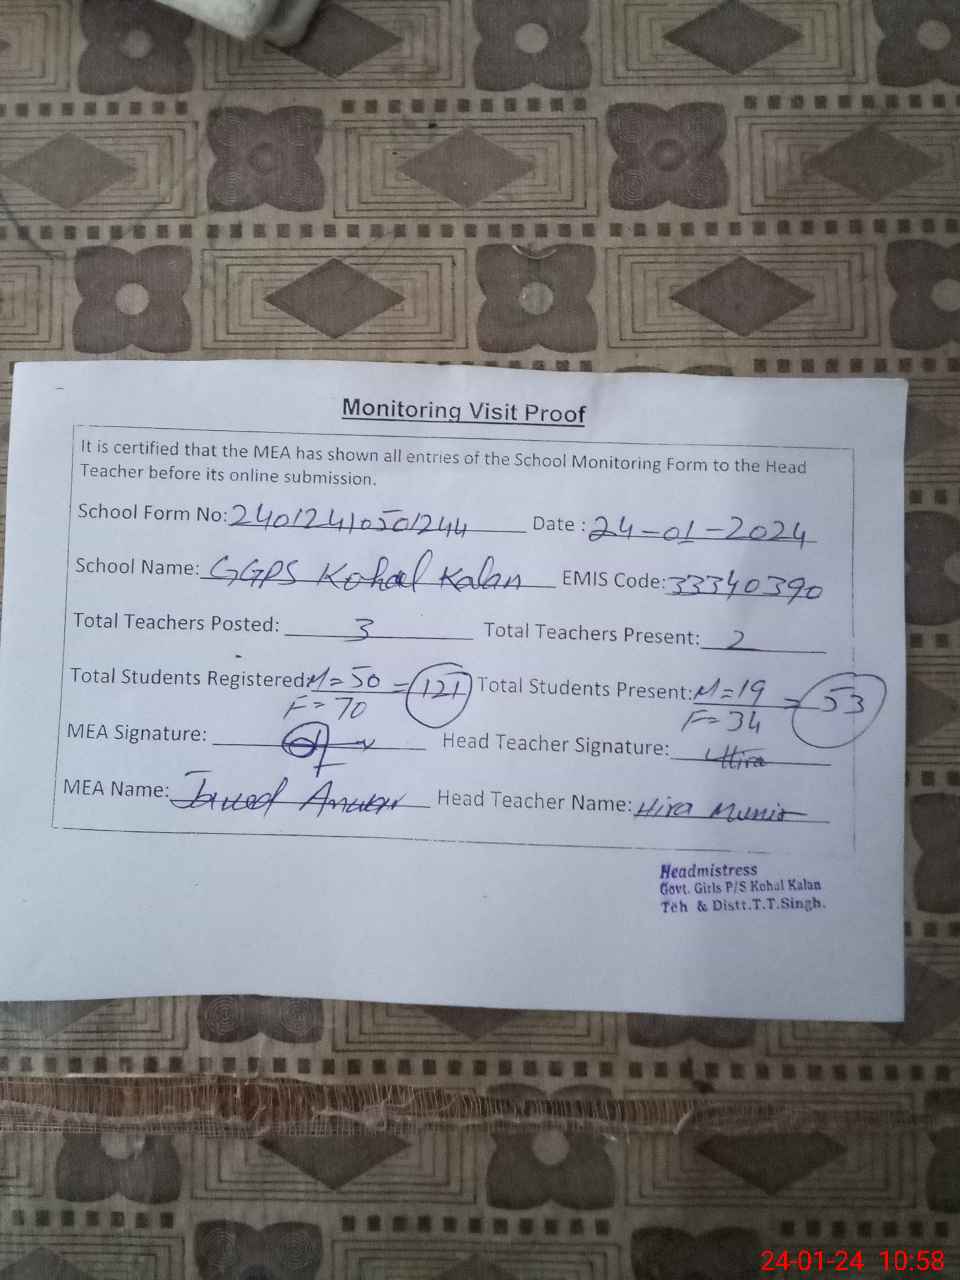 Monitoring Visit Proof
It is certified that the MEA has shown all entries of the School Monitoring Form to the Head
Teacher before its online submission.
School Form No: 24012410501244 Date : 24-01-2024
School Name: GGPS Kohal Kalan EMIS Code: 33340390
Total Teachers Posted: 3 Total Teachers Present: 2
Total Students Registered: M=50 = 121 Total Students Present: M=19 = 53
F=70 F=34
MEA Signature: Head Teacher Signature: Hira
MEA Name: Head Teacher Name: Hira Munir
Headmistress
Govt. Girls P/S Kohal Kalan
Teh & Distt.T.T.Singh.
24-01-24 10:58